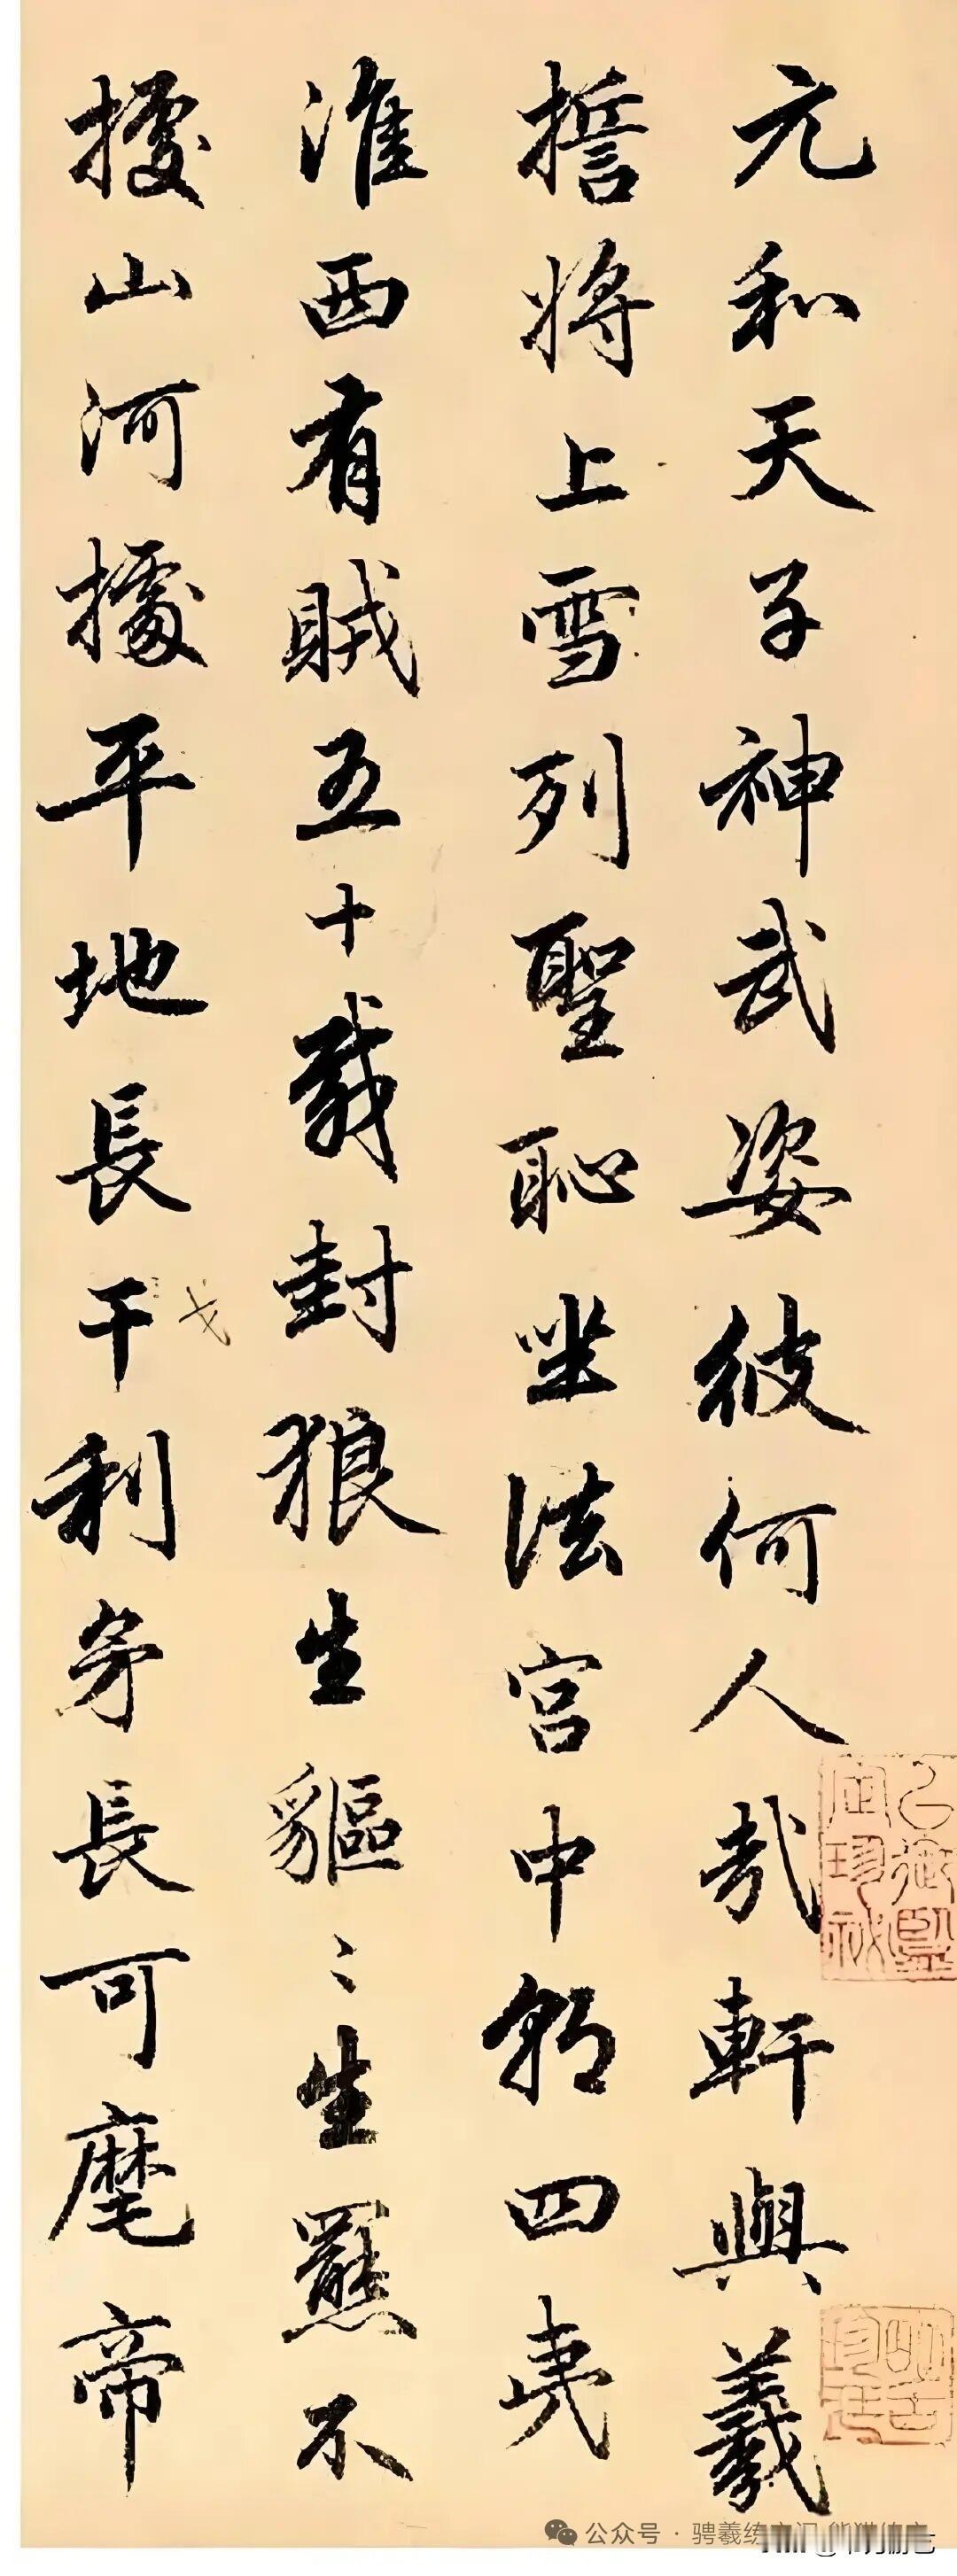 元和天子神武姿彼何人哉軒與羲
誓將上雪列聖恥坐法宮中朝四夷
淮西有賊五十載封狼生貙〻生羆不
據山河據平地長干利矛長可麾帝
戈
公众号·骋羲练字门